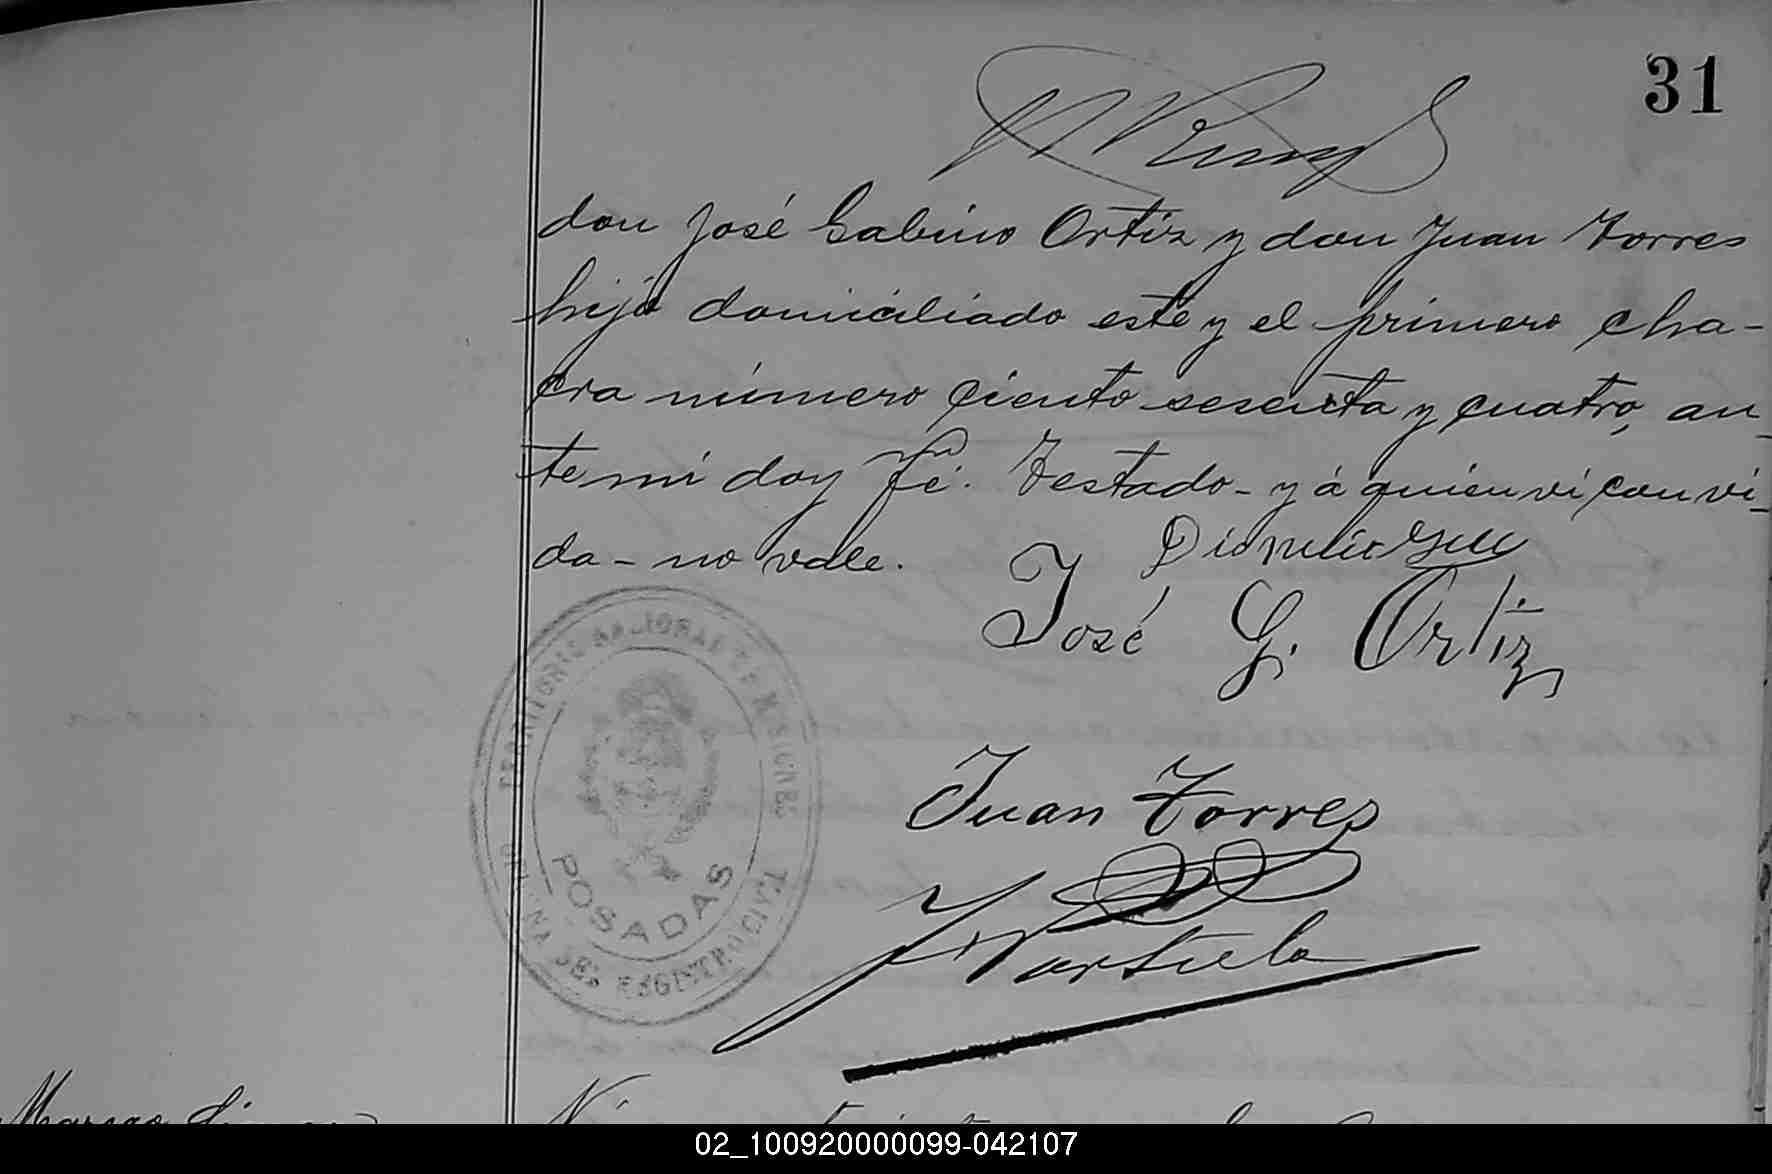 31
don José Gabino Ortiz y don Juan Torres
hijo domiciliado este y el primero cha-
cra número ciento sesenta y cuatro, an_
te mi doy fé. Testado - y á quien vi con vi_
da - no vale.
Dionicio
José G. Ortiz
Juan Torres
TERRITORIO NACIONAL DE MISIONES
POSADAS
OFICINA DEL REGISTRO CIVIL
02_100920000099-042107